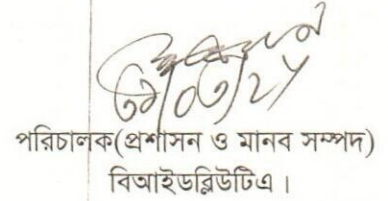 পরিচালক(প্রশাসন ও মানব সম্পদ)
বিআইডব্লিউটিএ।